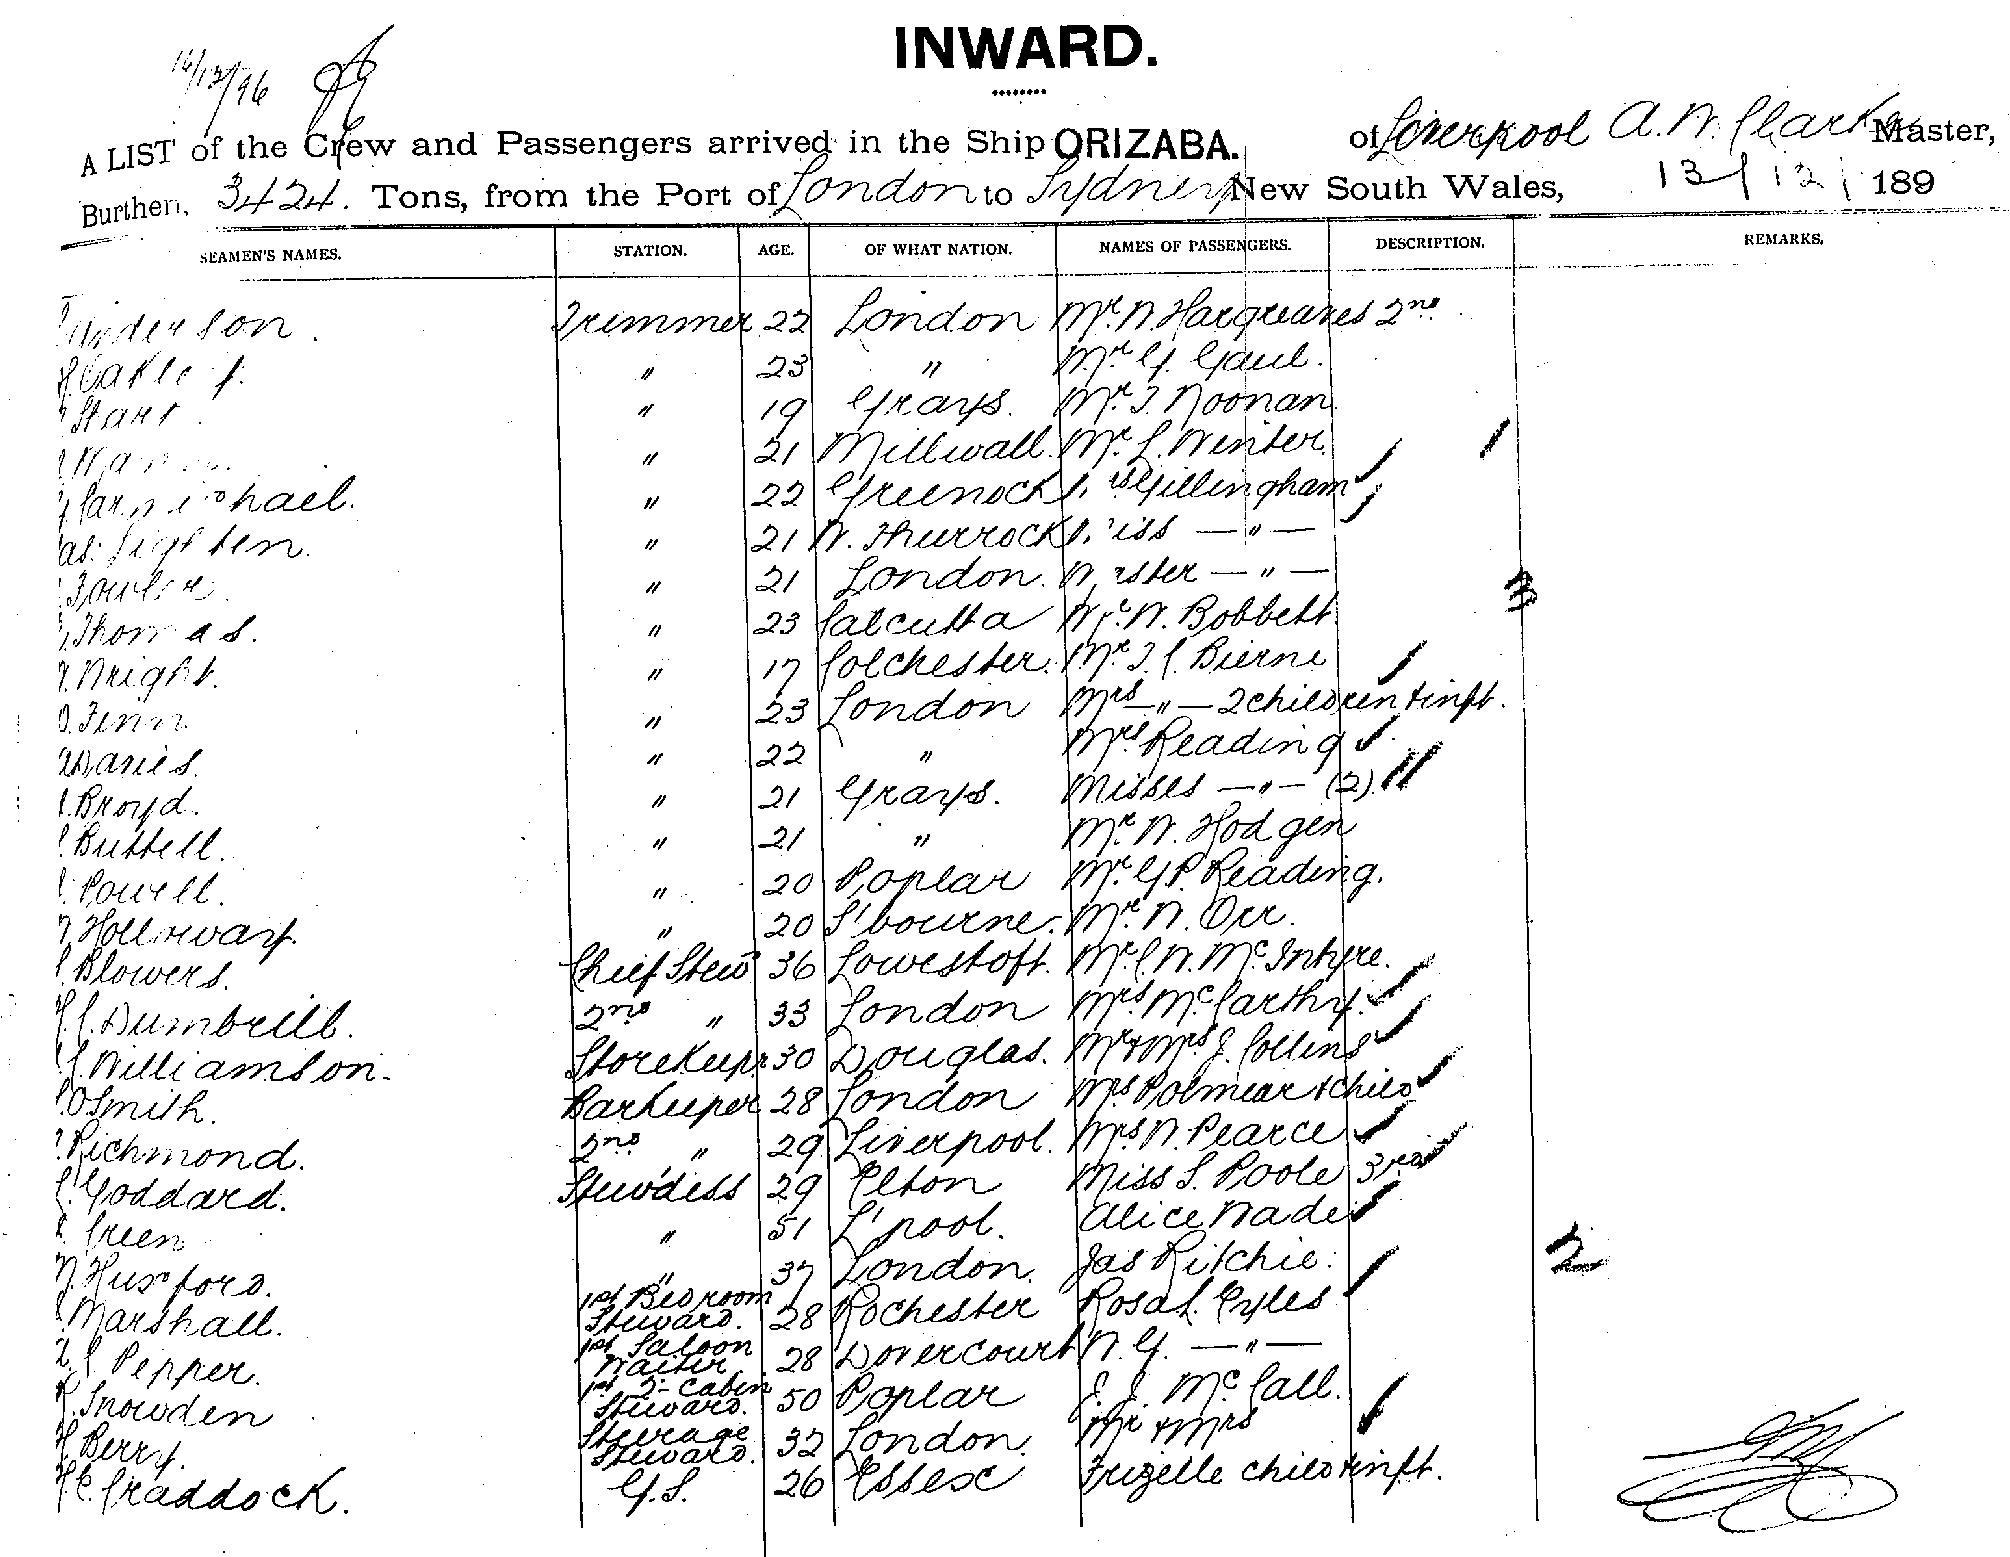 INWARD.
16/12/96
A LIST of the Crew and Passengers arrived in the Ship ORIZABA. of Liverpool A. W. Clarke Master,
Burthen, 3424. Tons, from the Port of London to Sydney New South Wales, 13/12/ 189
SEAMEN'S NAMES. STATION. AGE. OF WHAT NATION. NAMES OF PASSENGERS. DESCRIPTION. REMARKS.
Anderson. Trimmer 22 London Mr. W. Hargreaves 2nd
Oakley. " 23 " Mr. G. Gaul.
Start " 19 Grays. Mr. T. Noonan
" 21 Millwall. Mr. L. Winter.
Carmichael. " 22 Greenock Gillingham
Lighten. " 21 W. Thurrock Miss — " —
Fowler " 21 London. Master — " —
3
Thomas. " 23 Calcutta Mr. W. Bobbett
Wright. " 17 Colchester. Mr. T. C. Bierne
Fenn " 23 London Mrs — " — 2 children & inft.
Davies. " 22 " Mrs Reading
Broyd. " 21 Grays. Misses — " — (2)
Buttell. " 21 " Mr. W. Hodgen
Powell. " 20 Poplar Mr. G. P. Reading.
Holloway. " 20 S'bourne. Mr. W. Orr.
Blowers. Chief Stewd 36 Lowestoft. Mr. C. W. McIntyre.
H. C. Dumbrill. 2nd " 33 London Mrs McCarthy.
Williamson. Storekeepr 30 Douglas. Mr & Mrs J. Collins
Smith. Barkeeper 28 London Mrs Polmear & child
Richmond. 2nd " 29 Liverpool. Mrs W. Pearce
Goddard. Stewdess 29 Elton Miss S. Poole 3rd
Green " 51 L'pool. Alice Wade
2
Huxford. " 37 London. Jas Ritchie.
Marshall. 1st Bedroom Steward. 28 Rochester Rosa L. Eyles
Pepper. 1st Saloon Waiter 28 Dovercourt W. G. — " —
Snowden 1st 2- Cabin Steward. 50 Poplar J. J. McCall.
Berry. Steerage Steward. 32 London. Mr & Mrs
Craddock. G. S. 26 Essex Frizelle child & inft.